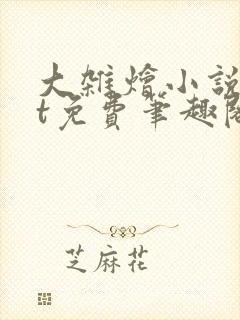 大雜燴小說
t免費筆趣閣
芝麻花